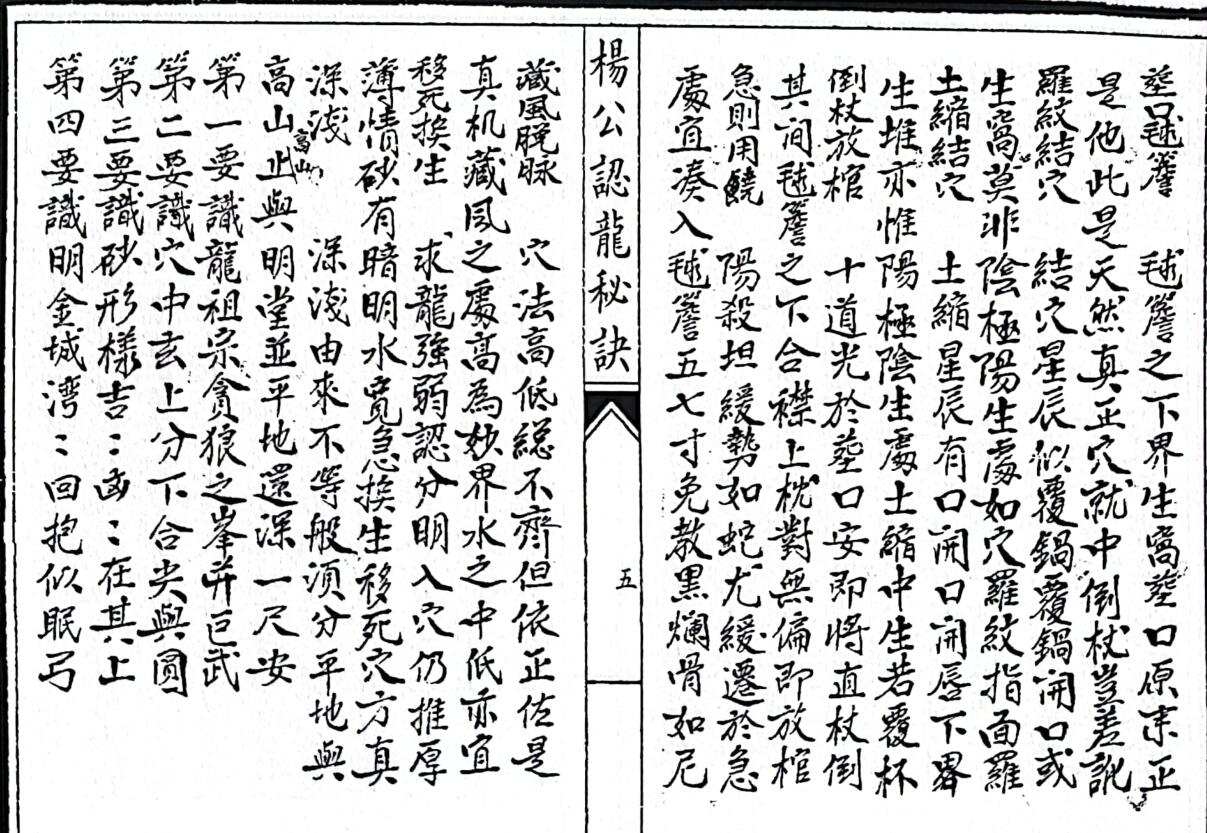 塟口毬簷　毬簷之下界生窩塟口原来正
是他此是天然真正穴就中倒杖豈差訛
羅紋結穴　結穴星辰似覆鍋覆鍋開口或
生窩莫非陰極陽生處如穴羅紋指面羅
土縮結穴　土縮星辰有口開口開唇下界
生堆亦惟陽極陰生處土縮中生若覆杯
倒杖放棺　十道光於塟口安即將直杖倒
其间毬簷之下合襟上枕對無偏即放棺
急則用饒　陽殺坦緩勢如蛇尤緩遷於急
處宜凑入毬簷五七寸免教黑爛骨如尼
楊公認龍秘訣
五
藏風脫脉　穴法高低総不齊但依正佐是
真机藏风之處高為妙界水之中低亦宜
移死挨生　求龍強弱認分明入穴仍推厚
薄情砂有暗明水寛急挨生移死穴方真
深淺　深淺由來不等般湏分平地與
高山
高山止與明堂並平地還深一尺安
第一要識龍祖宗貪狼之峯并巨武
第二要識穴中玄上分下合尖與圓
第三要識砂形樣吉：凶：在其上
第四要識明金城湾：回抱似眠弓